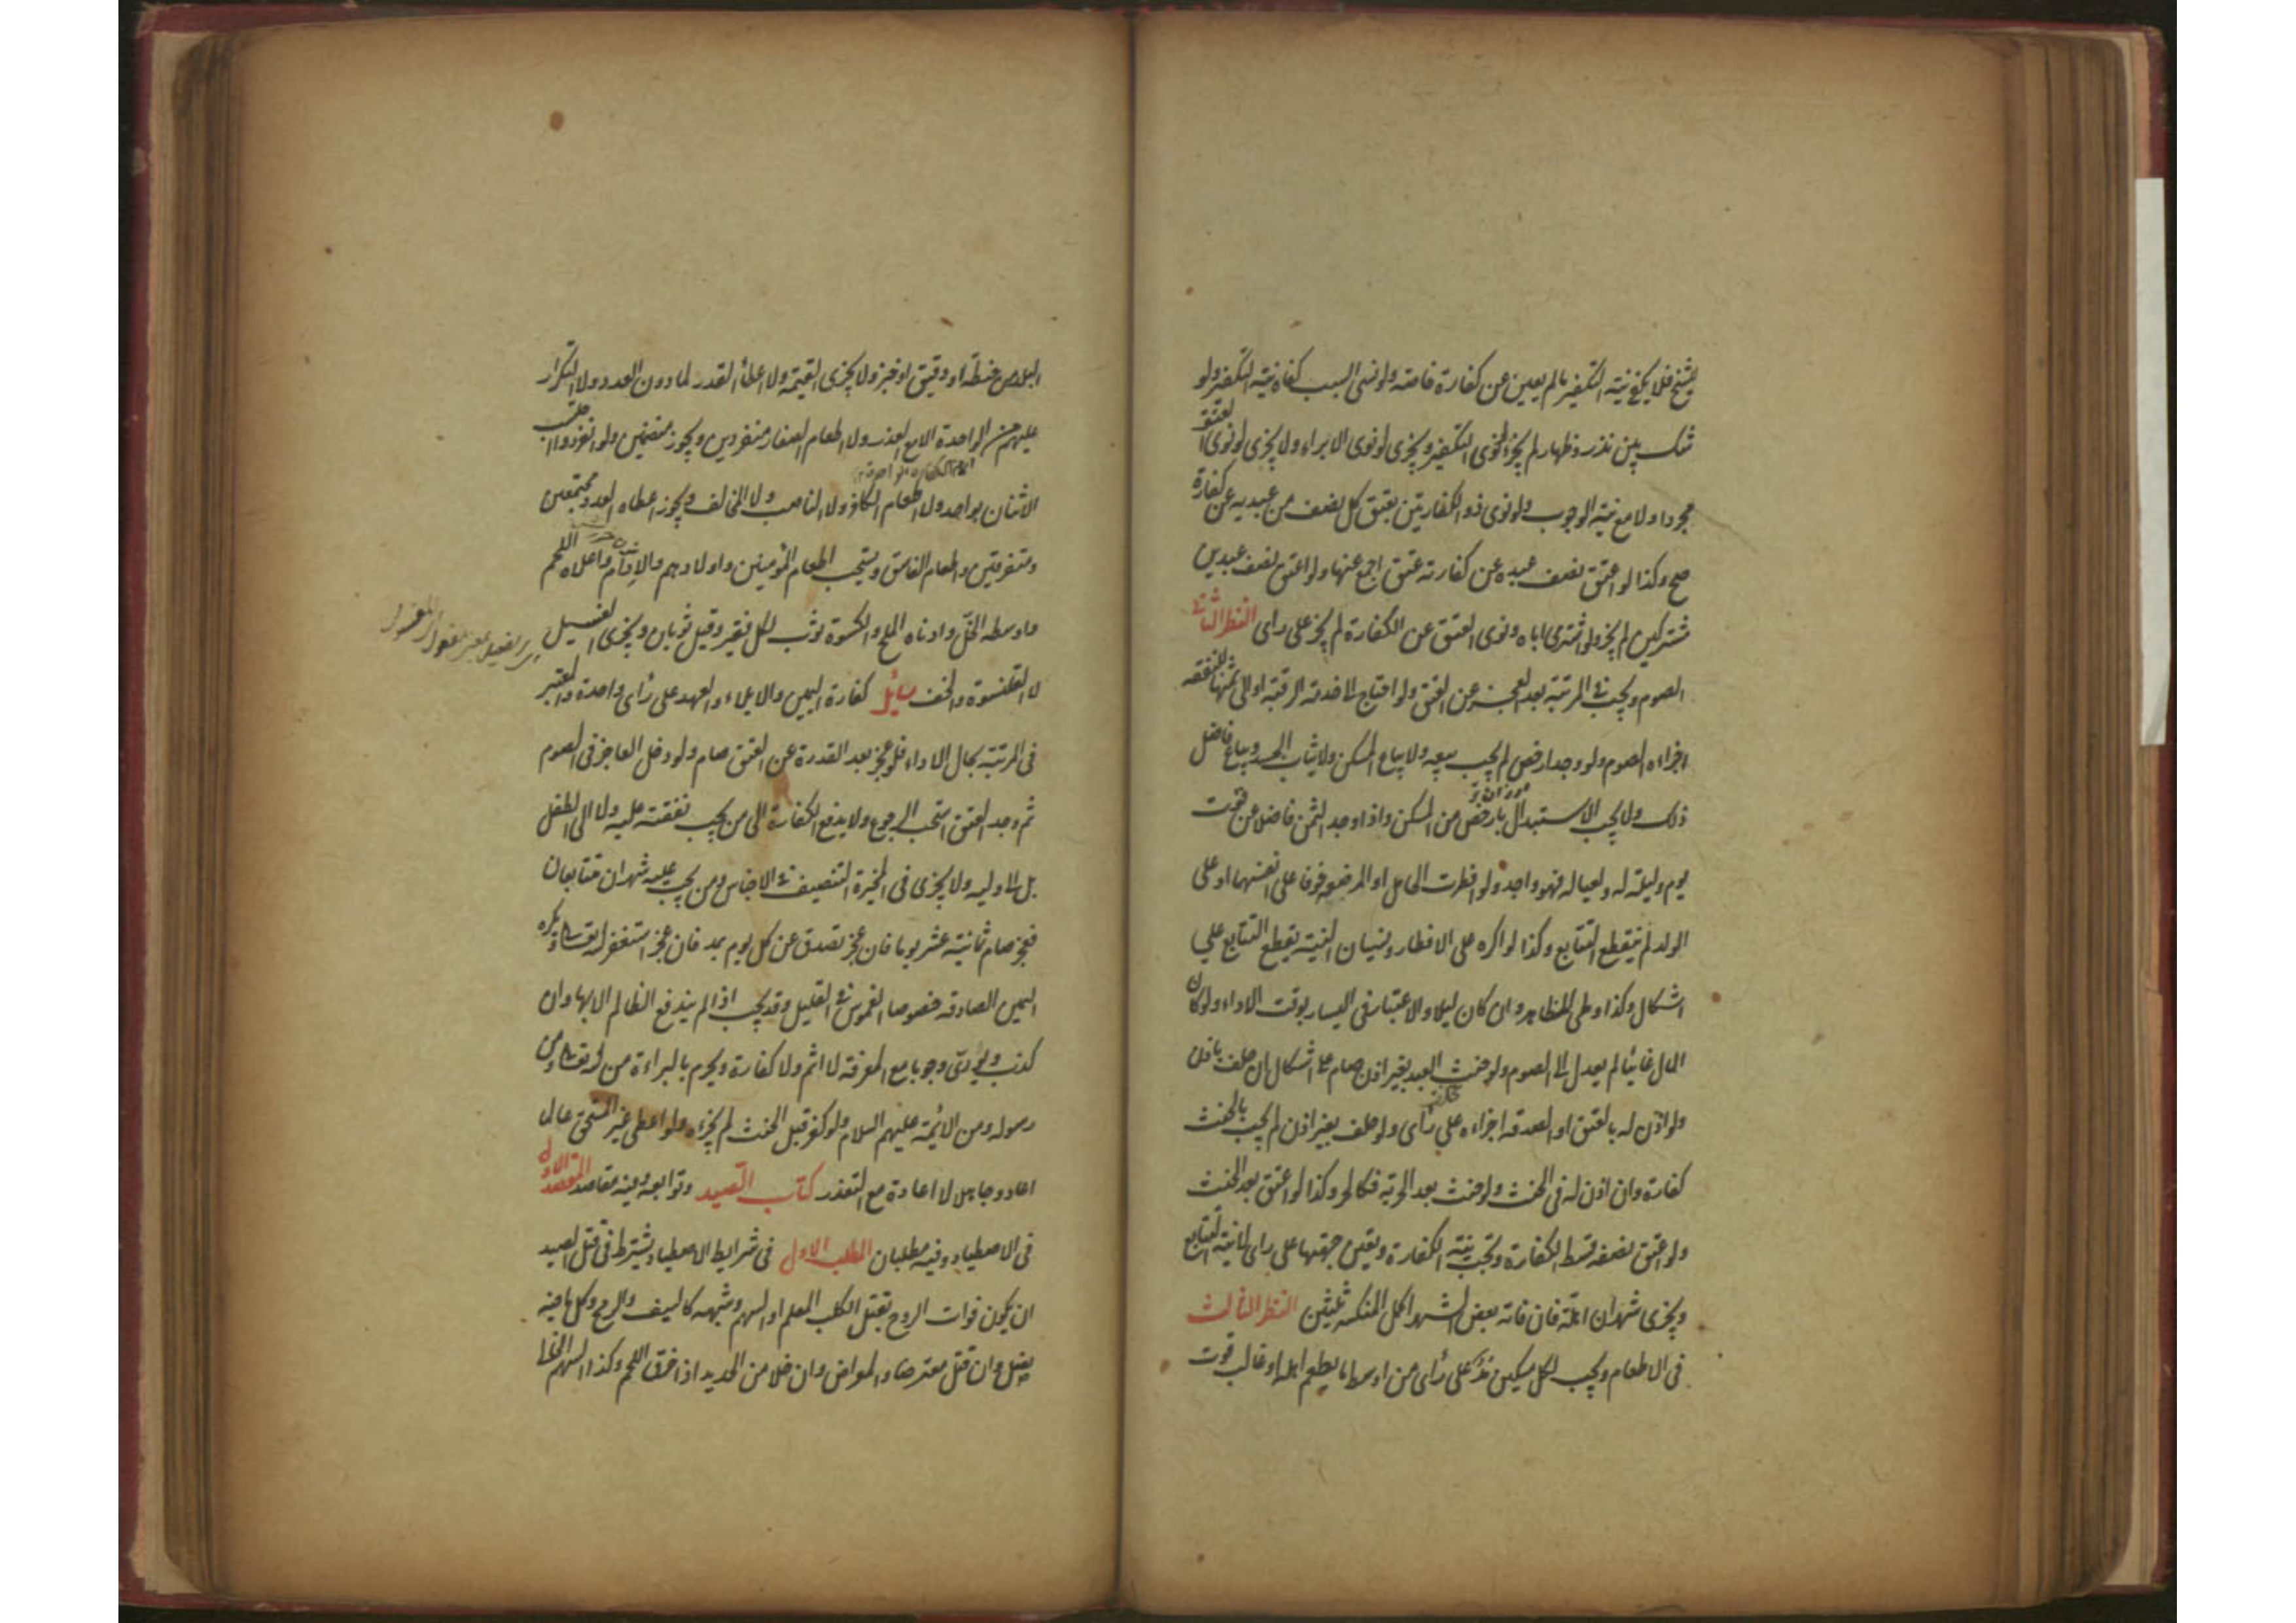 الشيخ فلا يكفي نية التكفير ما لم يعين عن كفارة خاصة ولو نسى السبب كفاه نية التكفير ولو
شك بين نذر وظهار لم يجز لو نوى التكفير ويجزى لو نوى الابراء ولا يجزى لو نوى العتق
مجردا ولا مع نية الوجوب ولو نوى ذو الكفارتين بعتق كل نصف من عبديه عن كفارة
صح وكذا لو اعتق نصف عبده عن كفارته عتق اجمع عنها ولو اعتق نصف عبدين
مشتركين لم يجز ولو اشترى اباه ونوى العتق عن الكفارة لم يجز على راى النظر الثانى
الصوم ويجب فى المرتبة بعد العجز عن العتق ولو احتاج الى خدمة الرقبة او الى ثمنها للنفقه
اجزاءه الصوم ولو وجد ارخص لم يجب بيعه ولا يباع المسكن ولا ثياب الجسد ويباع فاضل
ذلك ولا يجب الاستبدال بارخص من المسكن واذا وجد الثمن فاضلا عن قوت
يوم وليلة له ولعياله فهو واجد ولو افطرت الحامل او المرضع خوفا على انفسهما او على
الولد لم ينقطع التتابع وكذا لو اكره على الافطار ونسيان النية يقطع التتابع على
اشكال وكذا وطى المظاهر وان كان ليلا والاعتبار فى اليسار بوقت الاداء ولو كان
المال غائبا لم يعدل الى الصوم ولو حنث العبد بغير اذن صام على اشكال ان حلف باذن
ولو اذن له بالعتق او الصدقه اجزاءه على رأى ولو حلف بغير اذن لم يجب بالحنث
كفارة وان اذن له فى الحنث ولو حنث بعد الحرية فكالحر وكذا لو اعتق بعد الحنث
ولو اعتق نصفه قسط الكفارة وتجب نية الكفارة وتعين جهتها على راى لا نية التتابع
ويجزى شهران اهلة فان فاته بعض الشهر اكمل المنكسر ثلثين النظر الثالث
فى الاطعام ويجب لكل مسكين مد على رأى من اوسط ما يطعم اهله او غالب قوت
البلد من حنطة او دقيق او خبز ولا يجزى القيمة ولا اعطاء القدر لما دون العدد ولا التكرار
عليهم من الواحدة الا مع العذر ولا اطعام الصغار منفردين ويجوز منضمين ولو انفردوا احتسب
الاثنان بواحد ولا اطعام الكافر ولا الناصب ولا المخالف ويجوز اعطاء العدد مجتمعين
ومتفرقين واطعام الفاسق ويستحب اطعام المؤمنين واولادهم والادام واعلاه اللحم
واوسطه الخل وادناه الملح والكسوة ثوب لكل فقير وقيل ثوبان ويجزى الغسيل
لا القلنسوة والخف مسائل كفارة اليمين والايلاء والعهد على رأى واحدة والمعتبر
فى المرتبة بحال الاداء فلو عجز بعد القدرة عن العتق صام ولو دخل العاجز فى الصوم
ثم وجد العتق استحب الرجوع ولا يدفع الكفارة الى من يجب نفقته عليه ولا الى الطفل
بل الى وليه ولا يجزى فى المخيرة التنصيف فى الاجناس ومن يجب عليه شهران متتابعان
فعجز صام ثمانية عشر يوما فان عجز تصدق عن كل يوم بمد فان عجز استغفر الله تعالى ويكره
اليمين الصادقه خصوصا الغموس فى القليل وقد يجب اذا لم يندفع الظالم الا بها وان
كذب ويورى وجوبا مع المعرفة لا اثم ولا كفارة ويحرم بالبراءة من الله تعالى ومن
رسوله ومن الائمة عليهم السلام ولو كفر قبل الحنث لم يجزءه ولو اعطى غير المستحق عالما
اعاد وجاهلا لا اعادة مع التعذر كتاب الصيد وتوابعه وفيه مقاصد المقصد الاول
فى الاصطياد وفيه مطلبان المطلب الاول فى شرايط الاصطياد يشترط فى قتل الصيد
ان يكون فوات الروح بقتل الكلب المعلم او السهم وشبهه كالسيف والرمح وكل ما فيه
نصل وان قتل معترضا والمعراض وان خلا من الحديد اذا خرق اللحم وكذا السهم الخالى